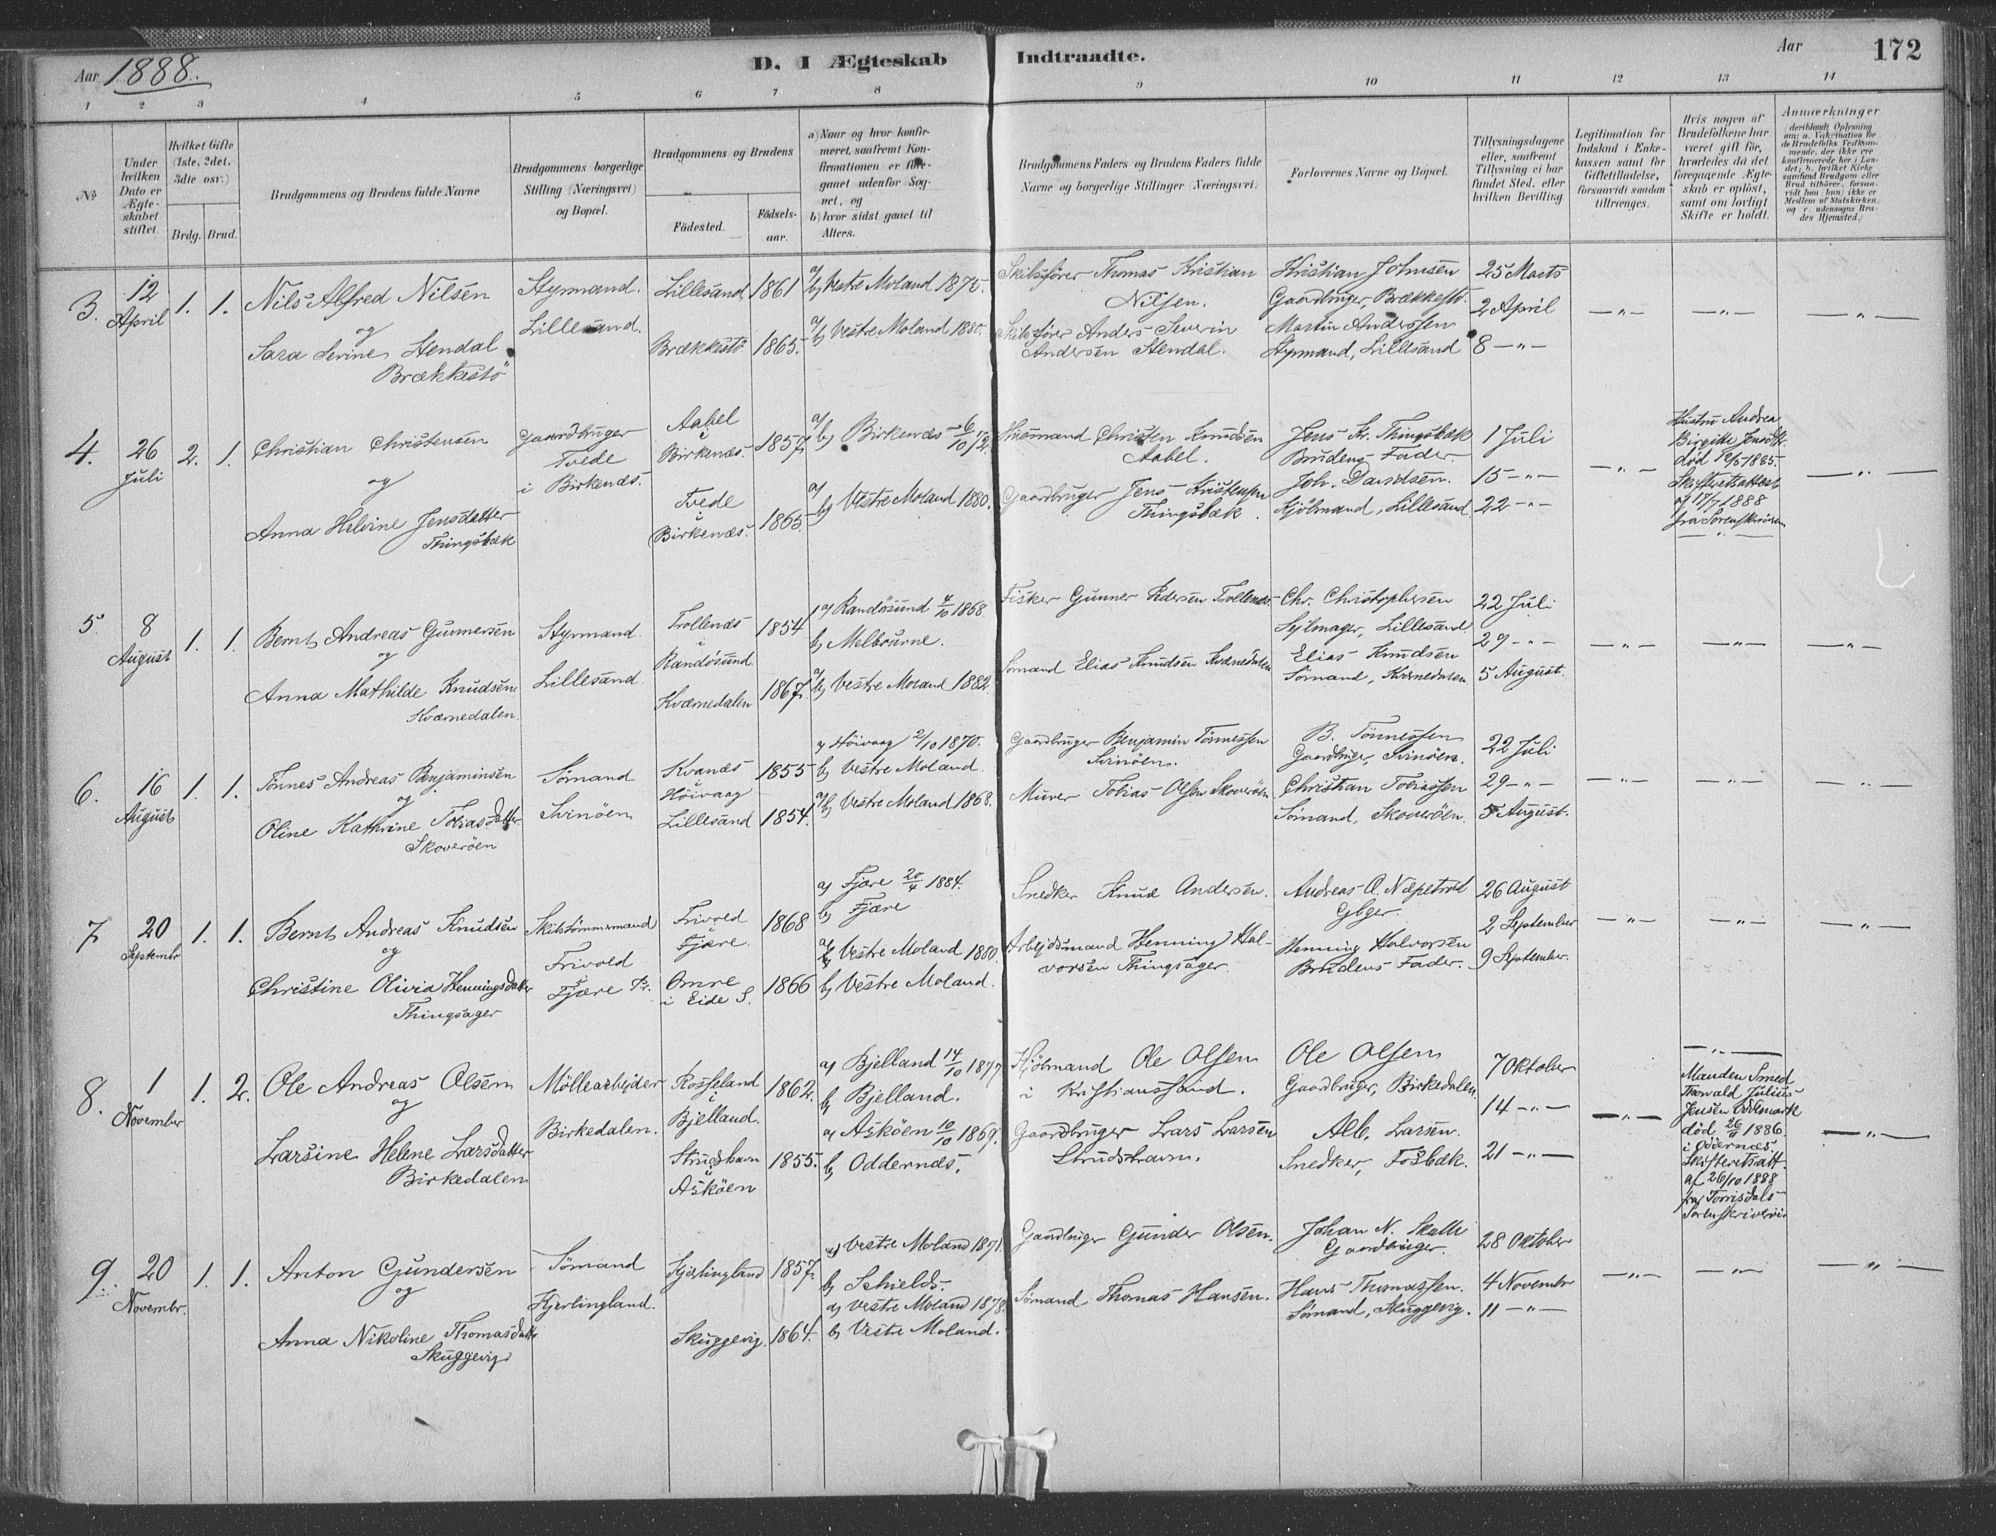 Aar 1888.
D. I Ægteskab Indtraadte.
Aar 172
1 2 3 4 5 6 7 8 9 10 11 12 13 14
No
Under hvilken Dato er Ægteskabet stiftet.
Hvilket Gifte (1ste, 2det, 3die osv.)
Brdg. Brud.
Brudgommens og Brudens fulde Navne
Brudgommens borgerlige Stilling (Næringsvei) og Bopæl.
Brudgommens og Brudens
Fødested. Fødselsaar.
a) Naar og hvor konfirmeret, saafremt Konfirmationen er foregaaet udenfor Sognet, og
b) hvor sidst gaaet til Alters.
Brudgommens Faders og Brudens Faders fulde Navne og borgerlige Stillinger (Næringsvei).
Forlovernes Navne og Bopæl.
Tillysningsdagene eller, saafremt Tillysning ei har fundet Sted, efter hvilken Bevilling.
Legitimation for Indskud i Enkekassen samt for Giftetilladelse, forsaavidt saadan tiltrænges.
Hvis nogen af Brudefolkene har været gift før, hvorledes da det foregaaende Ægteskab er opløst, samt om lovligt Skifte er holdt.
Anmærkninger
3. 12 April 1. 1.
Nils Alfred Nilsen
og
Sara Serine Stendal
Brækkestö
Styrmand.
Lillesand.
Lillesand 1861
Brækkestö 1865.
a/b/ Vestre Moland 1875.
a/b/ Vestre Moland 1880.
Skibsfører Thomas Kristian
Nilsen.
Skibsfører Anders Severin
Andersen Stendal.
Kristian Johnsen
Gaardbruger, Brækkestö.
Martin Anderssen
Styrmand, Lillesand
25 Marts
2 April
8 —"—
—"— —"— —"—
4. 26 Juli 2. 1.
Christian Christensen
og
Anna Helvine Jensdatter
Thingsbæk
Gaardbruger
Tvede
i Birkenæs.
Aabel
i
Birkenæs. 1857
Tvede
i
Birkenæs. 1865
a/b/ Birkenæs 6/10 72.
a/b/ Vestre Moland 1880.
Husmand Christen Knudsen
Aabel.
Gaardbruger Jens Kristensen
Thingsbæk.
Jens Kr. Thingsbæk
Brudens Fader
Joh. Davidsen.
Kjölmand, Lillesand
1 Juli
15 —"—
22 —"—
—"—
Hustru Andrea
Birgitte Jensdtr.
död 12/5 1885.
Skifteretsattest
af 17/7 1888
fra Sorenskriveren
—"—
—"—
5. 8 August 1. 1.
Bernt Andreas Gunnersen
og
Anna Mathilde Knudsen
Kværnedalen.
Styrmand.
Lillesand.
Trollenæs
i
Randösund 1854
Kværnedalen 1867
a/ Randösund 4/10 1868.
b/ Melbourne.
a/b/ Vestre Moland 1882.
Fisker Gunner Pedersen Trollenæs.
Sömand Elias Knudsen Kværnedalen
Chr. Christophersen
Sejlmager, Lillesand
Elias Knudsen
Sömand, Kværnedalen
22 Juli
29 —"—
5 August.
—"— —"— —"—
6. 16 August 1. 1.
Tönnes Andreas Benjaminsen
og
Oline Kathrine Tobiasdatter
Skoveröen
Sömand
Svinöen
Kvanæs
i
Höivaag 1855
Lillesand 1854.
a/ Höivaag 2/10 1870.
b/ Vestre Moland.
a/b/ Vestre Moland 1868.
Gaardbruger Benjamin Tönnessen
Svinöen.
Murer Tobias Olsen Skoveröen.
B. Tönnessen
Gaardbruger, Svinöen.
Christian Tobiassen
Sömand, Skoveröen.
22 Juli
29 —"—
5 August.
—"— —"— —"—
7. 20 September 1. 1.
Bernt Andreas Knudsen
og
Christine Olivia Henningsdatter
Thingsager
Skibstömmermand
Frivold
i
Fjære Pr.
Frivold
i
Fjære. 1868
Omre
i Eide S. 1866
a/ Fjære 20/4 1884.
b/ Fjære
a/ Vestre Moland 1880.
b/ Vestre Moland.
Snedker Knud Andersen.
Arbejdsmand Henning Halvorsen Thingsager.
Andreas A. Næpetröd
Gbger.
Henning Halvorsen
Brudens Fader.
26 August
2 September
9 September.
—"— —"— —"—
8. 1 November 1. 2.
Ole Andreas Olsen
og
Larsine Helene Larsdatter
Birkedalen
Möllearbejder
Birkedalen.
Rosseland
i
Bjelland. 1862.
Strudshavn
i
Asköen 1855.
a/ Bjelland 14/10 1877
b/ Bjelland.
a/ Asköen 10/10 1869.
b/ Oddernæs.
Kjölmand Ole Olsen
i Kristianssand.
Gaardbruger Lars Larsen
Strudshavn.
Ole Olsen
Gaardbruger, Birkedalen.
Alb. Larsen.
Snedker, Fosbæk.
7 Oktober
14 —"—
21 —"—
—"—
—"—
Manden Smed
Thorvald Julius
Jensen Oddemark
död 26/11 1886.
i Oddernæs.
Skifteretsatt.
af 26/10 1888
fra Torrisdals
Sorenskriveri
—"—
9. 20 Novembr. 1. 1.
Anton Gundersen
og
Anna Nikoline Thomasdatter
Skuggevig
Sömand
Kjerlingland.
Kjerlingland 1857.
Skuggevig. 1864.
a/ Vestre Moland 1871.
b/ Schields.
a/ Vestre Moland 1878.
b/ Vestre Moland.
Gaardbruger Gunder Olsen.
Sömand Thomas Hansen.
Johan N. Skalle
Gaardbruger.
Hans Thomassen.
Sömand, Skuggevig.
28 Oktober
4 Novembr
11 —"—
—"— —"— —"—